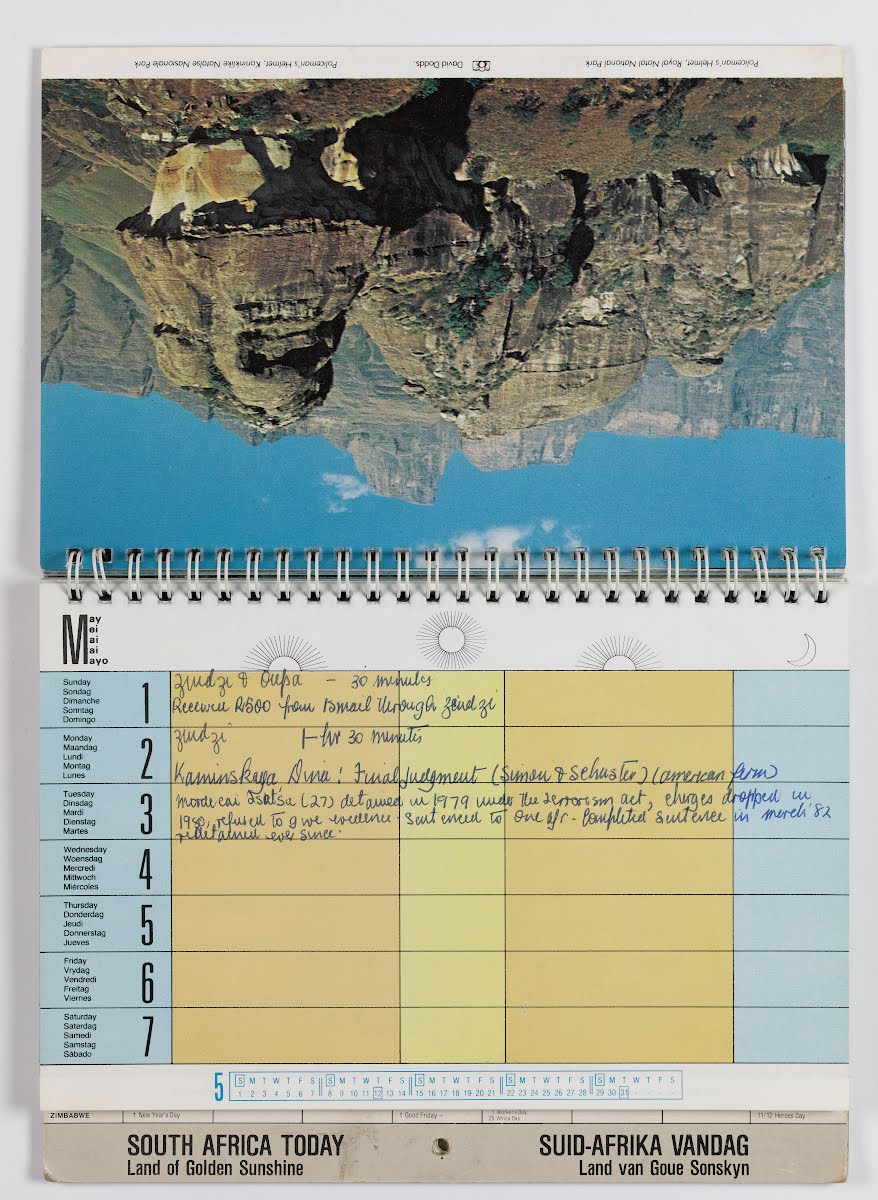 Policeman's Helmet, Royal Natal National Park
David Dodds.
Policeman's Helmet, Koninklike Natalse Nasionale Park
May
Mei
Mai
Mai
Mayo
Sunday
Sondag
Dimanche
Sonntag
Domingo
1
Zindzi & Oupa – 30 minutes
Received R500 from Ismail through Zindzi
Monday
Maandag
Lundi
Montag
Lunes
2
Zindzi 1 hr 30 minutes
Kaminskaya Dina: Final Judgment (Simon & Schuster) (american firm)
Tuesday
Dinsdag
Mardi
Dienstag
Martes
3
Mordecai Tsatsa (27) detained in 1979 under the Terrorism act, charges dropped in
1980, refused to give evidence. Sentenced to one yr. Completed sentence in march '82
redetained ever since.
Wednesday
Woensdag
Mercredi
Mittwoch
Miércoles
4
Thursday
Donderdag
Jeudi
Donnerstag
Jueves
5
Friday
Vrydag
Vendredi
Freitag
Viernes
6
Saturday
Saterdag
Samedi
Samstag
Sábado
7
5
S M T W T F S S M T W T F S S M T W T F S S M T W T F S S M T W T F S
1 2 3 4 5 6 7 8 9 10 11 12 13 14 15 16 17 18 19 20 21 22 23 24 25 26 27 28 29 30 31
ZIMBABWE 1 New Year's Day 1 Good Friday 1 Worker's Day 11/12 Heroes Day
25 Africa Day
SOUTH AFRICA TODAY SUID-AFRIKA VANDAG
Land of Golden Sunshine Land van Goue Sonskyn